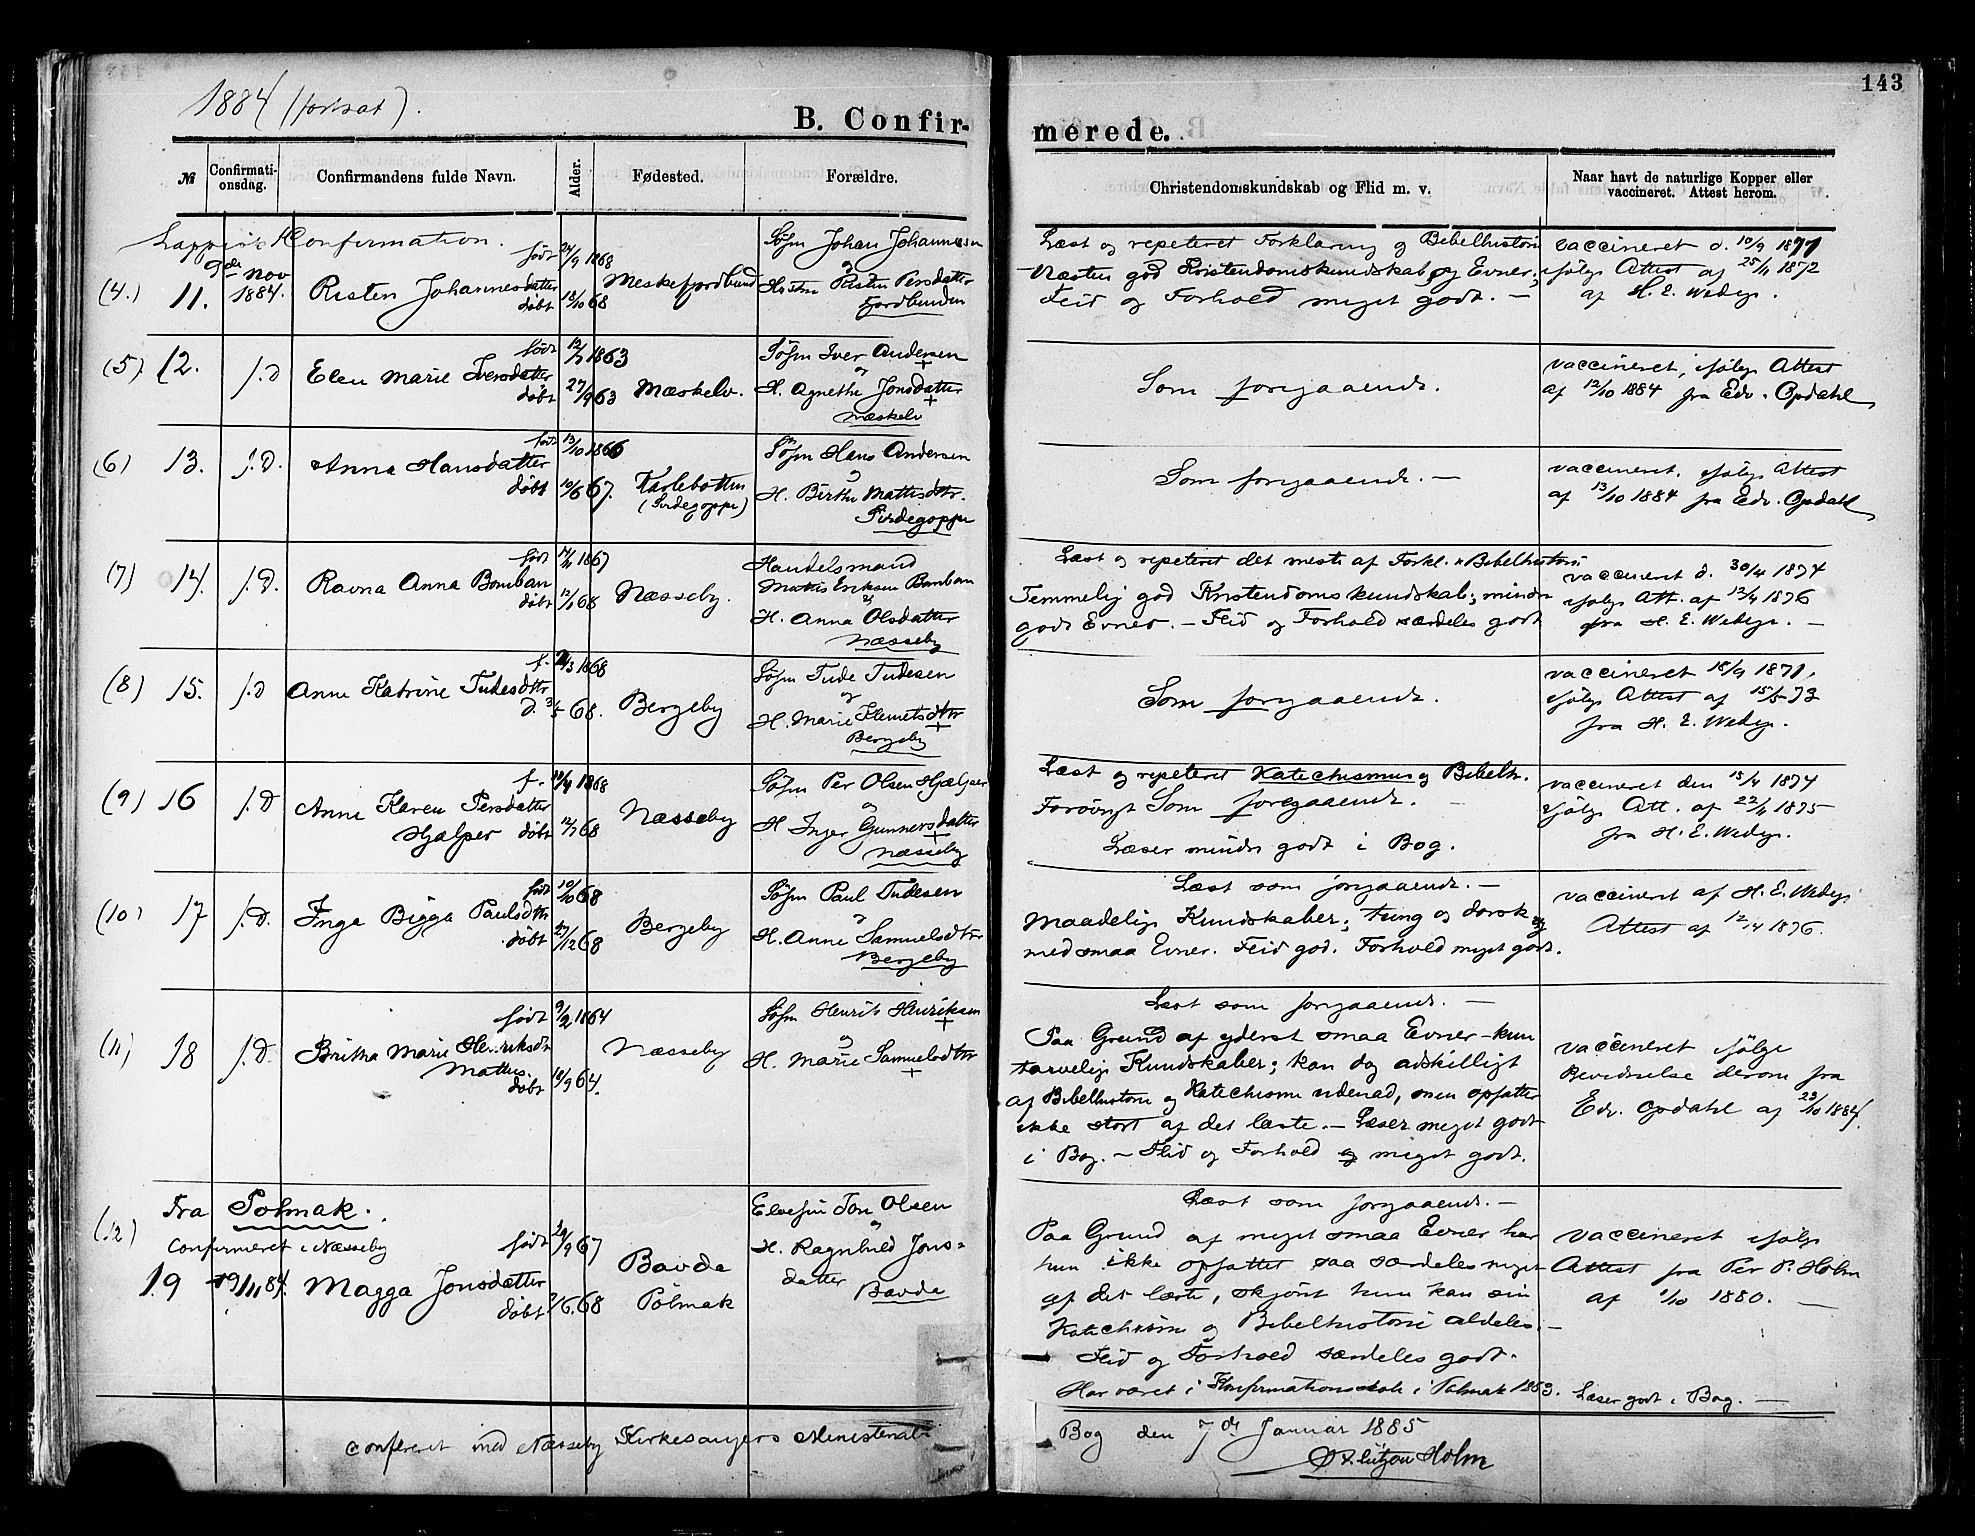 143
1884 (fortsat).
B. Confirmerede.
№ Confirmationsdag. Confirmandens fulde Navn. Alder. Fødested. Forældre. Christendomskundskab og Flid m. v. Naar havt de naturlige Kopper eller vaccineret. Attest herom.
Confirmation.
(4.) 11. 9de Nov 1884. Risten Johannesdatter født 24/9 1868 døbt 18/10 68
Meskefjordbund
Søfm Johan Johannesen
og
Hustru Risten Persdatter
Fjordbunden
Læst og repeteret Forklaring og Bibelhistorie
Næsten god Kristendomskundskab og Evner;
Flid og Forhold meget godt. —
vaccineret d. 10/9 1871
ifølge Attest af 25/11 1872
af H. E. Wedege.
(5) 12. s.D Elen Marie Iversdatter født 12/7 1863 døbt 27/9 63
Mæskelv.
Søfm Iver Andersen +
og
H. Agnethe Jonsdatter +
Mæskelv
Som foregaaende.
vaccineret, ifølge Attest
af 12/10 1884 fra Edv. Opdahl
(6) 13. s.D. Anna Hansdatter født 13/10 1866 døbt 10/6 67.
Karlebotten
Søfm Hans Andersen
og
H. Birthe Mattisdtr.
Som foregaaende. —
vaccineret, ifølge Attest
af 13/10 1884 fra Edv. Opdahl
(7) 14. s.D. Ravna Anna Bomban født 1867 døbt 68
Næsseby.
Handelsmand
Mathis Eriksen Banban
og
H. Anna Olsdatter
Næsseby
Læst og repeteret det meste af Forkl. & Bibelhistorie
Temmelig god Kristendomskundskab; mindre
gode Evner. — Flid og Forhold særdeles godt
vaccineret d. 30/4 1874
ifølge Att. af 12/4 1876
fra H. E. Wedege. —
(8) 15. s.D Anne Katrine Tudesdttr f. 1868 d. 3/5 68.
Bergeby
Søfm Tude Tudesen
og
H. Marie Klemetsdttr +
Bergeby
Som foregaaende.
vaccineret 18/9 1871,
ifølge Attest af 15/5 73
fra H. E. Wedege.
(9) 16 s.D Anne Karen Persdatter f. 1868
Hjælper døbt 12/7 68
Næsseby
Søfm Per Olsen Hjælper
og
H Inger Gunnersdatter +
Næsseby
Læst og repeteret Katechismus og Bibelh.
Forøvrigt Som foregaaende. —
Læser mindre godt i Bog.
vaccineret den 15/4 1874
ifølge Att. af 22/11 1875
fra H. E. Wedege.
(10) 17 s.D. Inga Bigga Paulsdttr født 10/10 68 døbt 27/12 68
Bergeby
Søfm Paul Tudesen
og
H. Anne Samuelsdttr
Bergeby
Læst som foregaaende. —
Maadelige Kundskaber; tung og dorsk og
med smaa Evner. Flid god. Forhold meget godt.
vaccineret af H. E. Wedege
Attest af 12/4 1876.
(11) 18 s.D. Britha Marie Henriksdtr født 9/2 1864
Mathis. døbt 18/9 64.
Næsseby
Søfm Henrik Henriksen +
og
H. Marie Samuelsdttr +
Læst som foregaaende. —
Paa Grund af yderst smaa Evner — kun
tarvelige Kundskaber; kan dog adskilligt
af Bibelhistorie og Katechisme udenad, men opfatter
ikke stort af det læste. — Læser meget godt
i Bog. — Flid og Forhold meget godt.
vaccineret ifølge
Bevidnelse derom fra
Edv. Opdahl af 23/10 1884.
(12) Fra Polmak.
Confirmeret i Næsseby
19 9/11 84. Magga Jonsdatter født 67 døbt 68
Bavda
Polmak
Elvefin Jon Olsen
og
H. Ragnhild Jons=
datter
Bavda
Læst som foregaaende. —
Paa Grund af meget smaa Evner har
hun ikke opfattet saa særdeles meget
af det læste, skjønt hun kan sin
Katechisme og Bibelhistorie aldeles. —
Flid og Forhold særdeles godt.
Har været i Konfirmationsskole i Polmak 1883. Læser godt i Bog. —
vaccineret ifølge
Attest fra Per P. Holm
af 1/10 1880. —
Confereret med Næsseby Kirkesangers Ministerial-
Bog den 7de Januar 1885
Lützow Holm